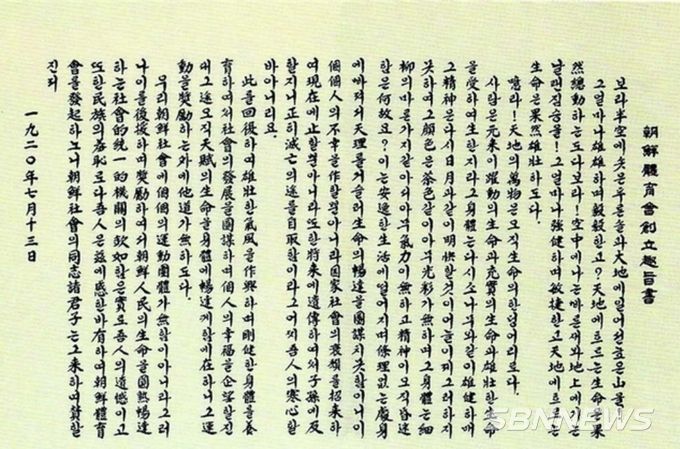 朝鮮體育會創立趣旨書
보라半空에솟은푸른솔과大地에일어선높은山을!
그얼마나雄雄하며毅毅한고?天地에흐르는生命은果
然總動하는도다보라!空中에나는빠른새와地上에닫는
날랜짐승을!그얼마나强健하며敏捷한고天地에흐르는
生命은果然雄壯하도다.
噫라!天地의萬物은오직生命의한덩어리로다.
사람은元來이躍動의生命과充實의生命과雄壯한生命
을受하여生한지라그身體는다시소나무와같이雄健하매
그精神은다시日月과같이明快할것이어늘이제그러하지
못하여그顔色은茶色같이아무光彩가無하며그身體는細
柳의마른가지같아서아무氣力이無하고精神이오직昏迷
함은何故요?이는安逸한生活에떨어지며條理없는廢身
에빠져서天理를거슬러生命의暢達을圖謀치못함이니이
個個人의不幸을作할뿐아니라国家社會의衰頹를招來하
여現在에止할뿐아니라또한將來에遺傳하여써子孫에及
할지니正히滅亡의途를自取함이라그어찌吾人의寒心할
바아니리요.
此를回復하여雄壯한氣風을作興하며剛健한身體를養
育하여써社會의發展을圖謀하며個人의幸福을企望할진
대그途오직天賦의生命을身體에暢達케함에在하니그運
動을奬勵하는外에他道가無하도다.
우리朝鮮社會에個個의運動團體가無함이아니라그러
나이를後援하며奬勵하여써朝鮮人民의生命을圓熟暢達
하는社會的統一的機關의欠如함은實로吾人의遺憾이고
또한民族의羞恥로다吾人은玆에感한바有하여朝鮮體育
會를發起하노니朝鮮社會의同志諸君子는그來하여贊할
진저
一九二0年七月十三日
SBNNEWS